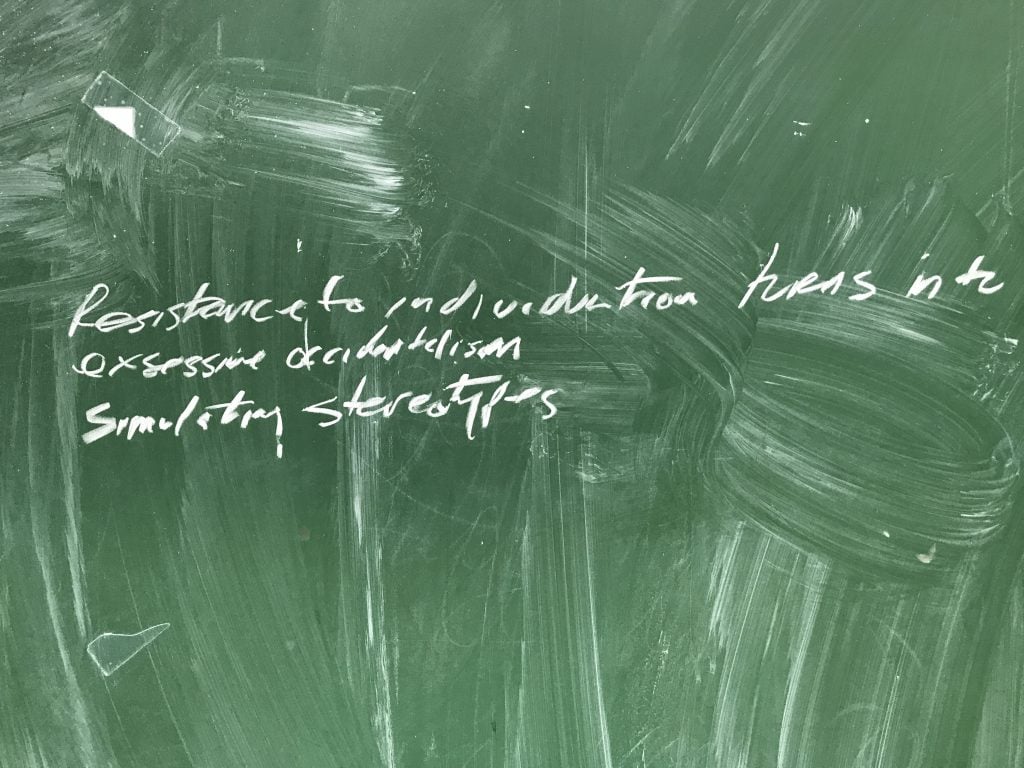 Resistance to individuation turns into
exsessive occidentalism
Simulating stereotypes